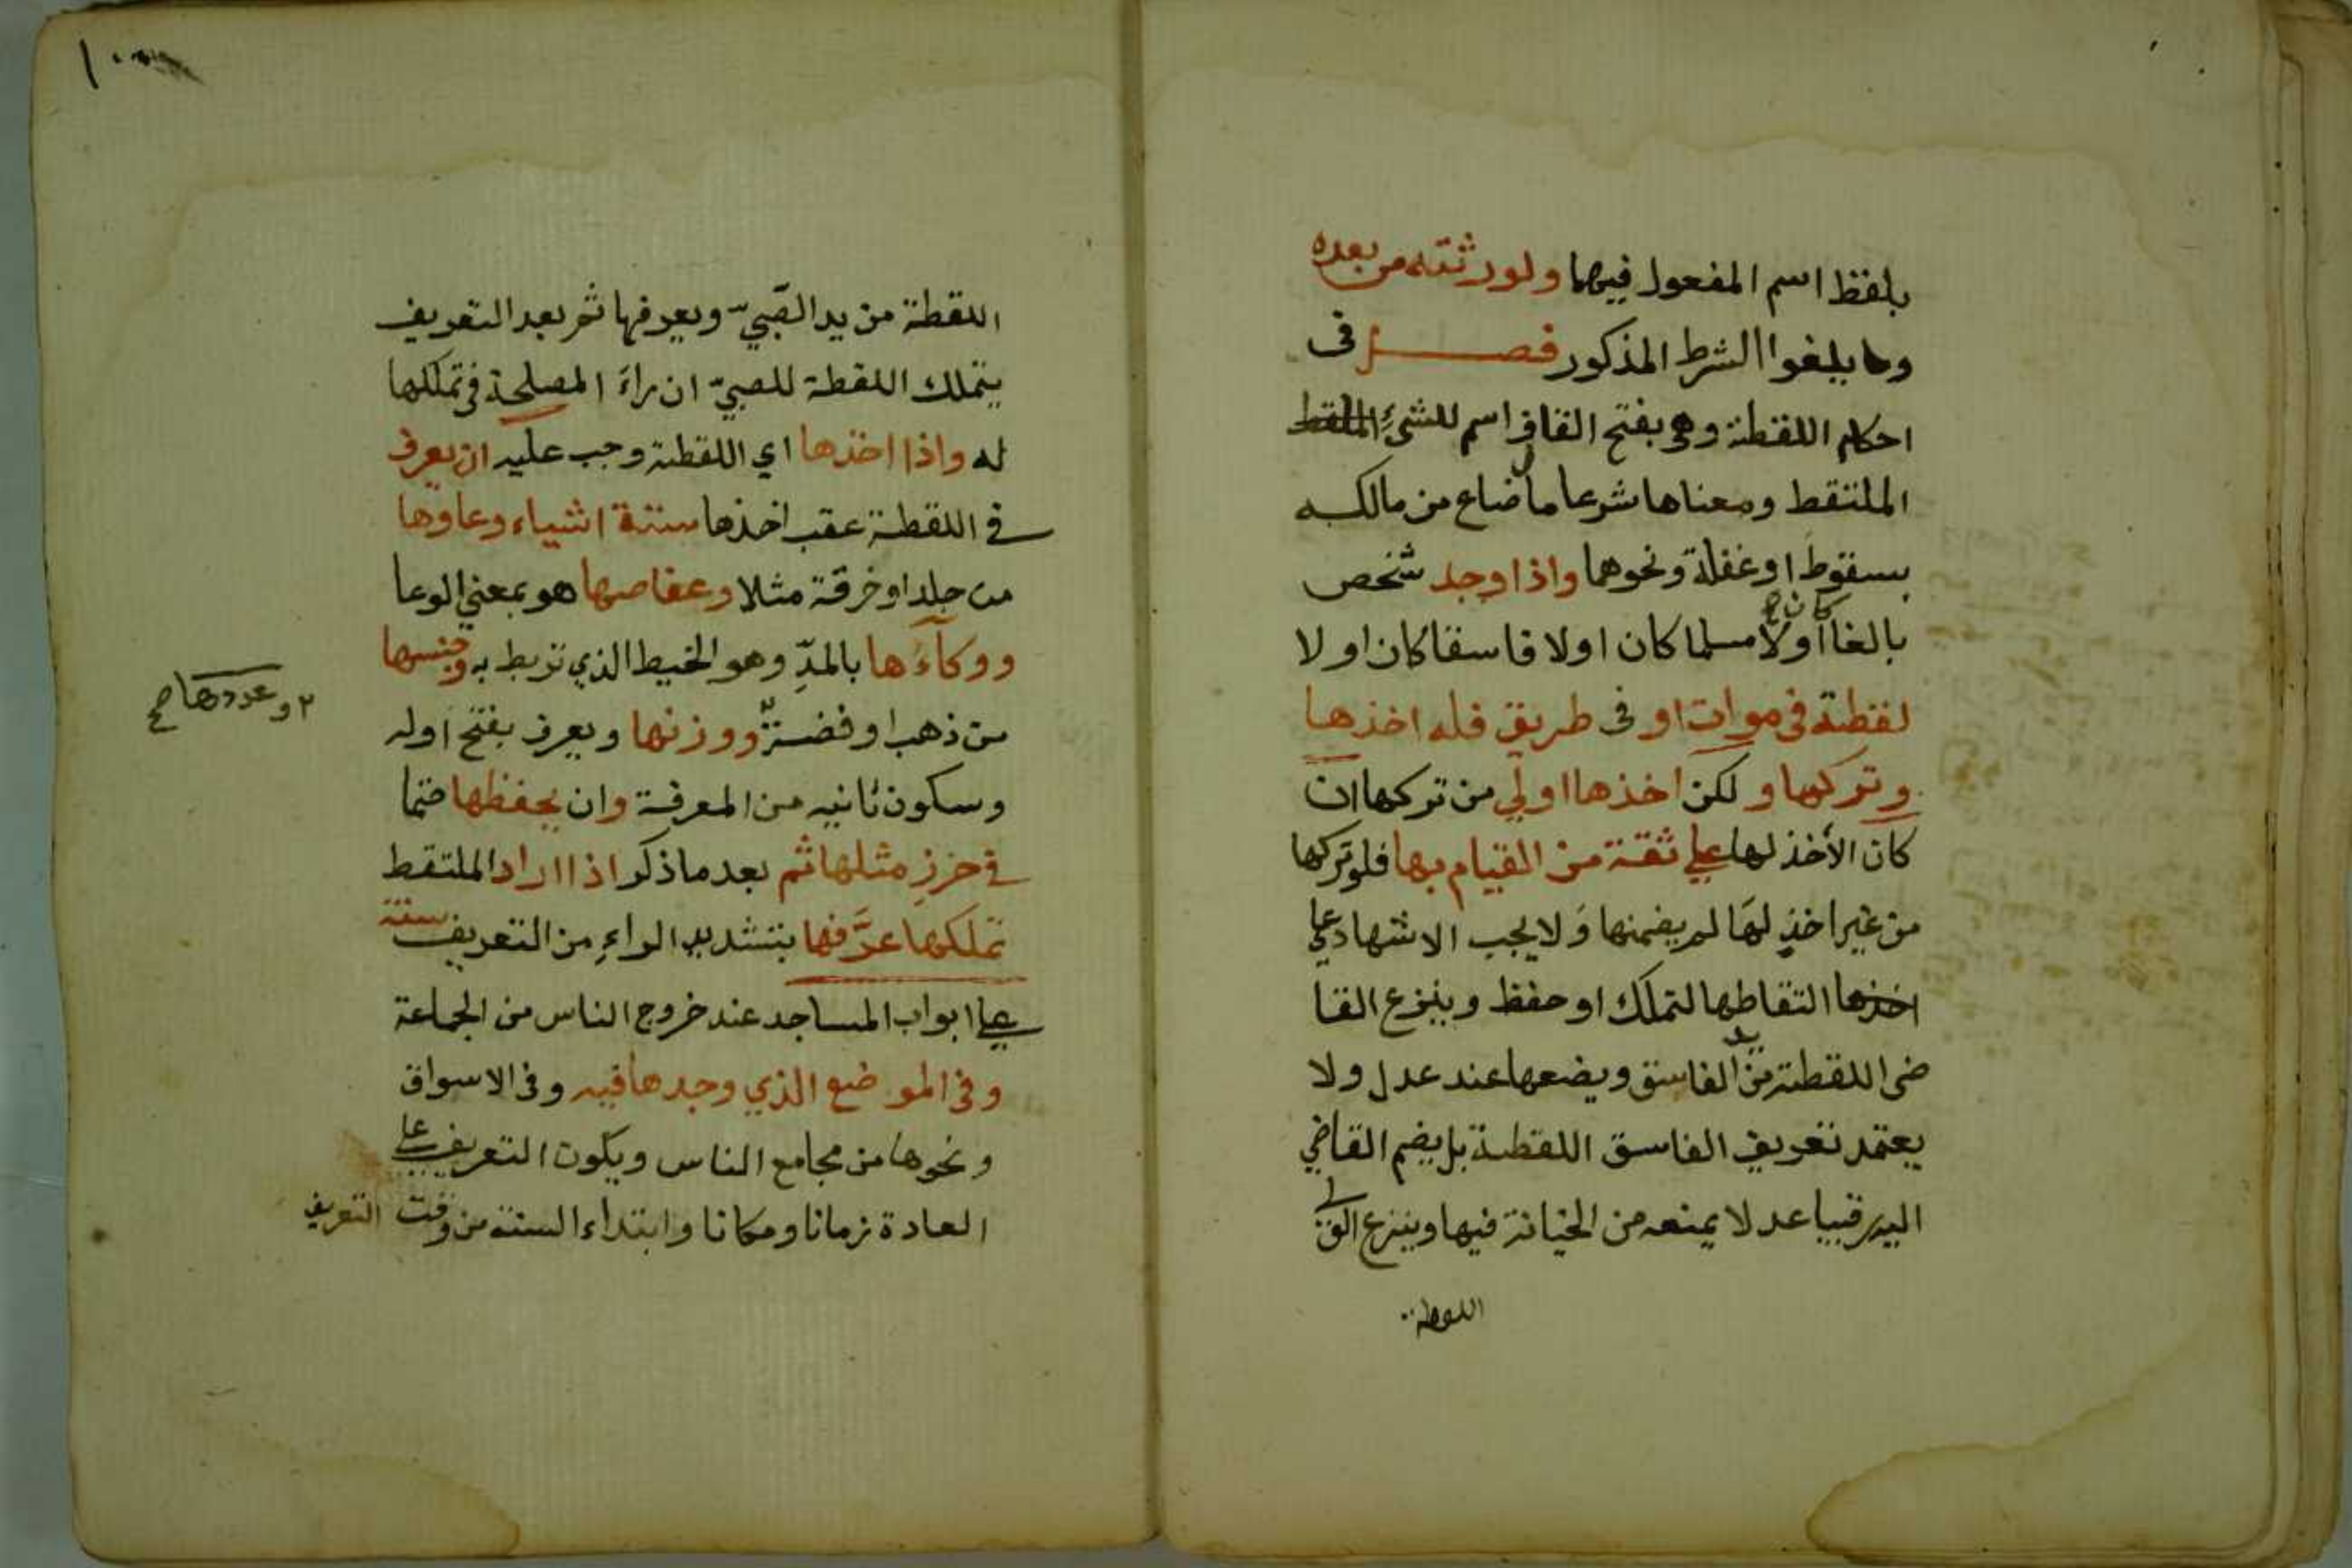 بلفظ اسم المفعول فيهما ولورثته من بعده
وما يبلغوا الشرط المذكور فصل فى
احكام اللقطة وهى بفتح القاف اسم للشئ الملقط
الملتقط ومعناها شرعا مال ضاع من مالكه
بسقوط او غفلة ونحوهما واذا وجد شخص
بالغا كان اولا مسلما كان اولا فاسقا كان اولا
لقطة فى موات او فى طريق فله اخذها
وتركها و لكن اخذها اولي من تركها ان
كان الأخذ لها علي ثقة من القيام بها فلو تركها
من غير اخذ لها لم يضمنها ولا يجب الاشهاد علي
اخذها التقاطها لتملك او حفظ وينزع القا
ضى اللقطة من يد الفاسق ويضعها عند عدل ولا
يعتمد تعريف الفاسق اللقطة بل يضم القاضي
اليه رقيبا عدلا يمنعه من الخيانة فيها وينزع الولي
اللقطة
١٠٠
اللقطة من يد الصبيّ ويعرفها ثم بعد التعريف
يتملك اللقطة للصبيّ ان رآء المصلحة فى تملكها
له واذا اخذها اي اللقطة وجب عليه ان يعرف
في اللقطة عقب اخذها ستة اشياء وعاؤها
من جلد او خرقة مثلا وعفاصها هو بمعني الوعا
ووكآءها بالمدّ وهو الخيط الذي تربط به وجنسها
من ذهب او فضة ووزنها ويعرف بفتح اوله
٢ وعددها صح
وسكون ثانيه من المعرفة وان يحفظها حتما
في حرز مثلها ثم بعد ما ذكر اذا اراد الملتقط
تملكها عرَّفها بتشديد الراء من التعريف سنة
علي ابواب المساجد عند خروج الناس من الجماعة
وفى الموضع الذي وجدها فيه وفى الاسواق
ونحوها من مجامع الناس ويكون التعريف علي
العادة زمانا ومكانا وابتداء السنة من وقت التعريف